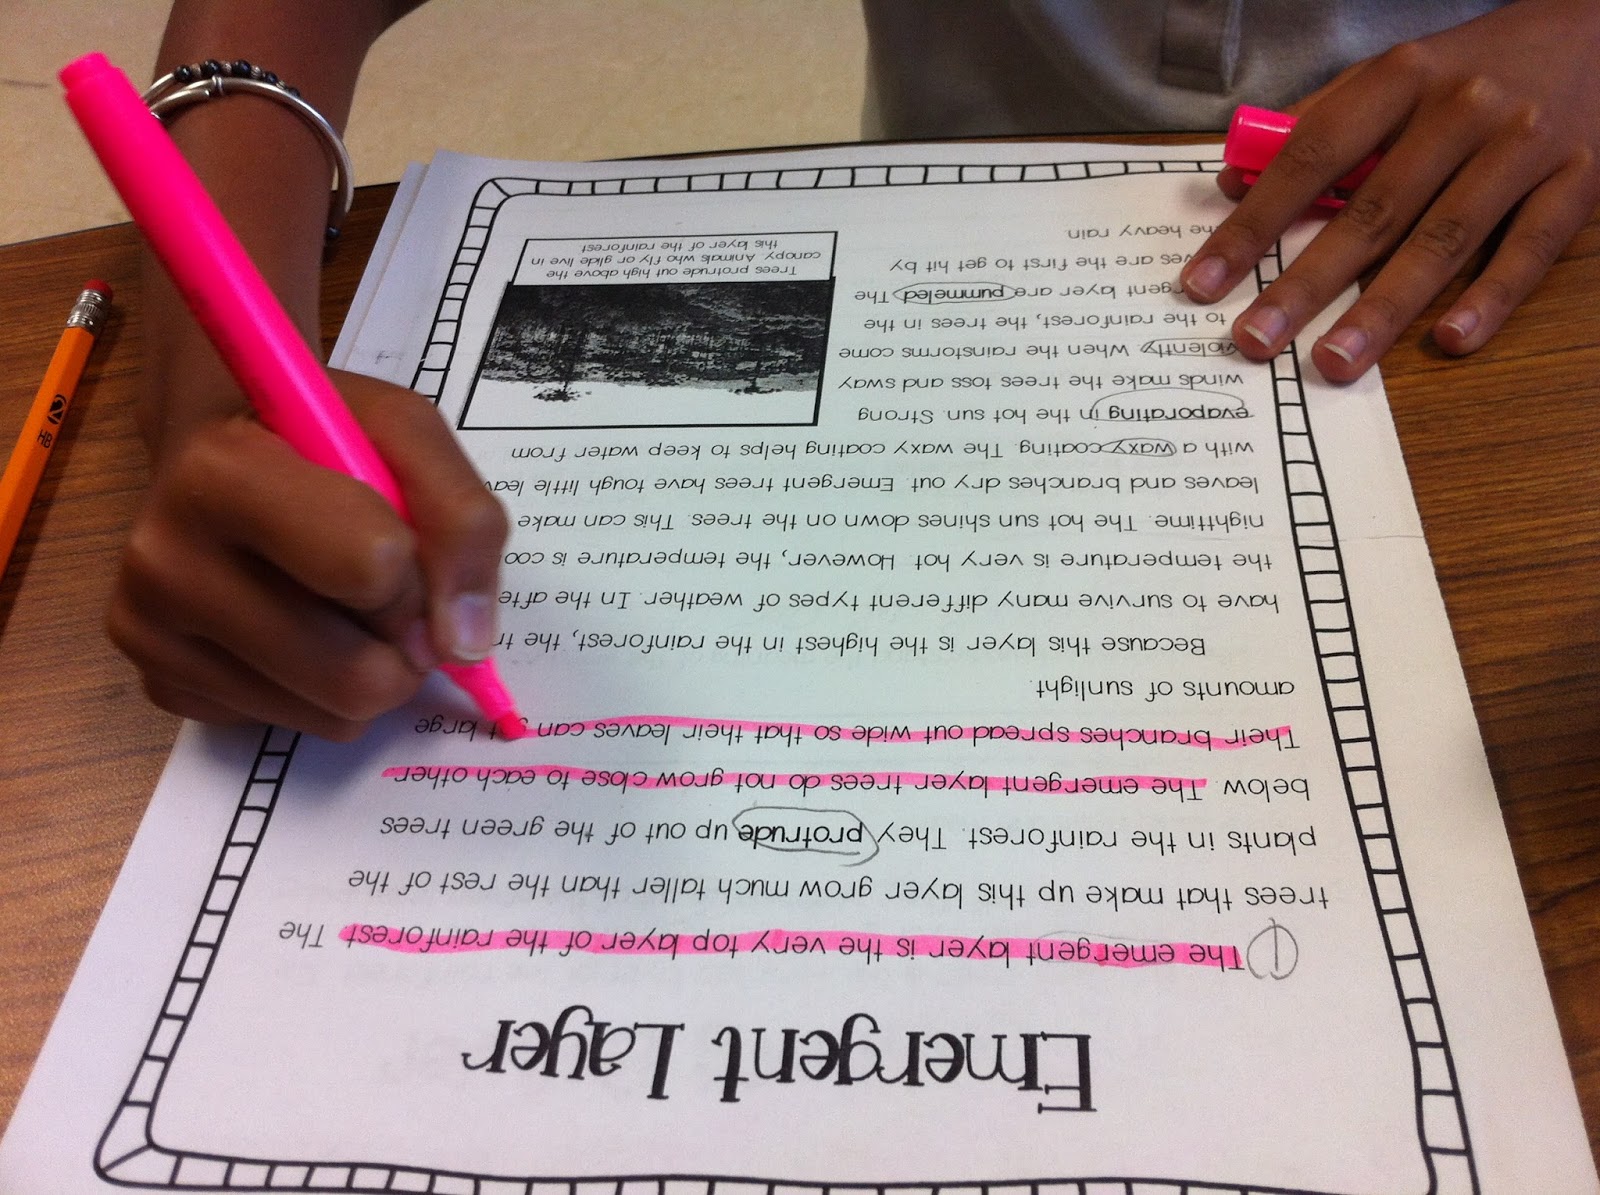 Emergent Layer
1 The emergent layer is the very top layer of the rainforest. The
trees that make up this layer grow much taller than the rest of the
plants in the rainforest. They protrude up out of the green trees
below. The emergent layer trees do not grow close to each other.
Their branches spread out wide so that their leaves can get large
amounts of sunlight.
Because this layer is the highest in the rainforest, the
have to survive many different types of weather. In the
the temperature is very hot. However, the temperature is
nighttime. The hot sun shines down on the trees. This can make
leaves and branches dry out. Emergent trees have tough little
with a waxy coating. The waxy coating helps to keep water from
evaporating in the hot sun. Strong
winds make the trees toss and sway
violently. When the rainstorms come
to the rainforest, the trees in the
layer are pummeled. The
are the first to get hit by
the heavy rain.
Trees protrude out high above the
canopy. Animals who fly or glide live in
this layer of the rainforest.
HB